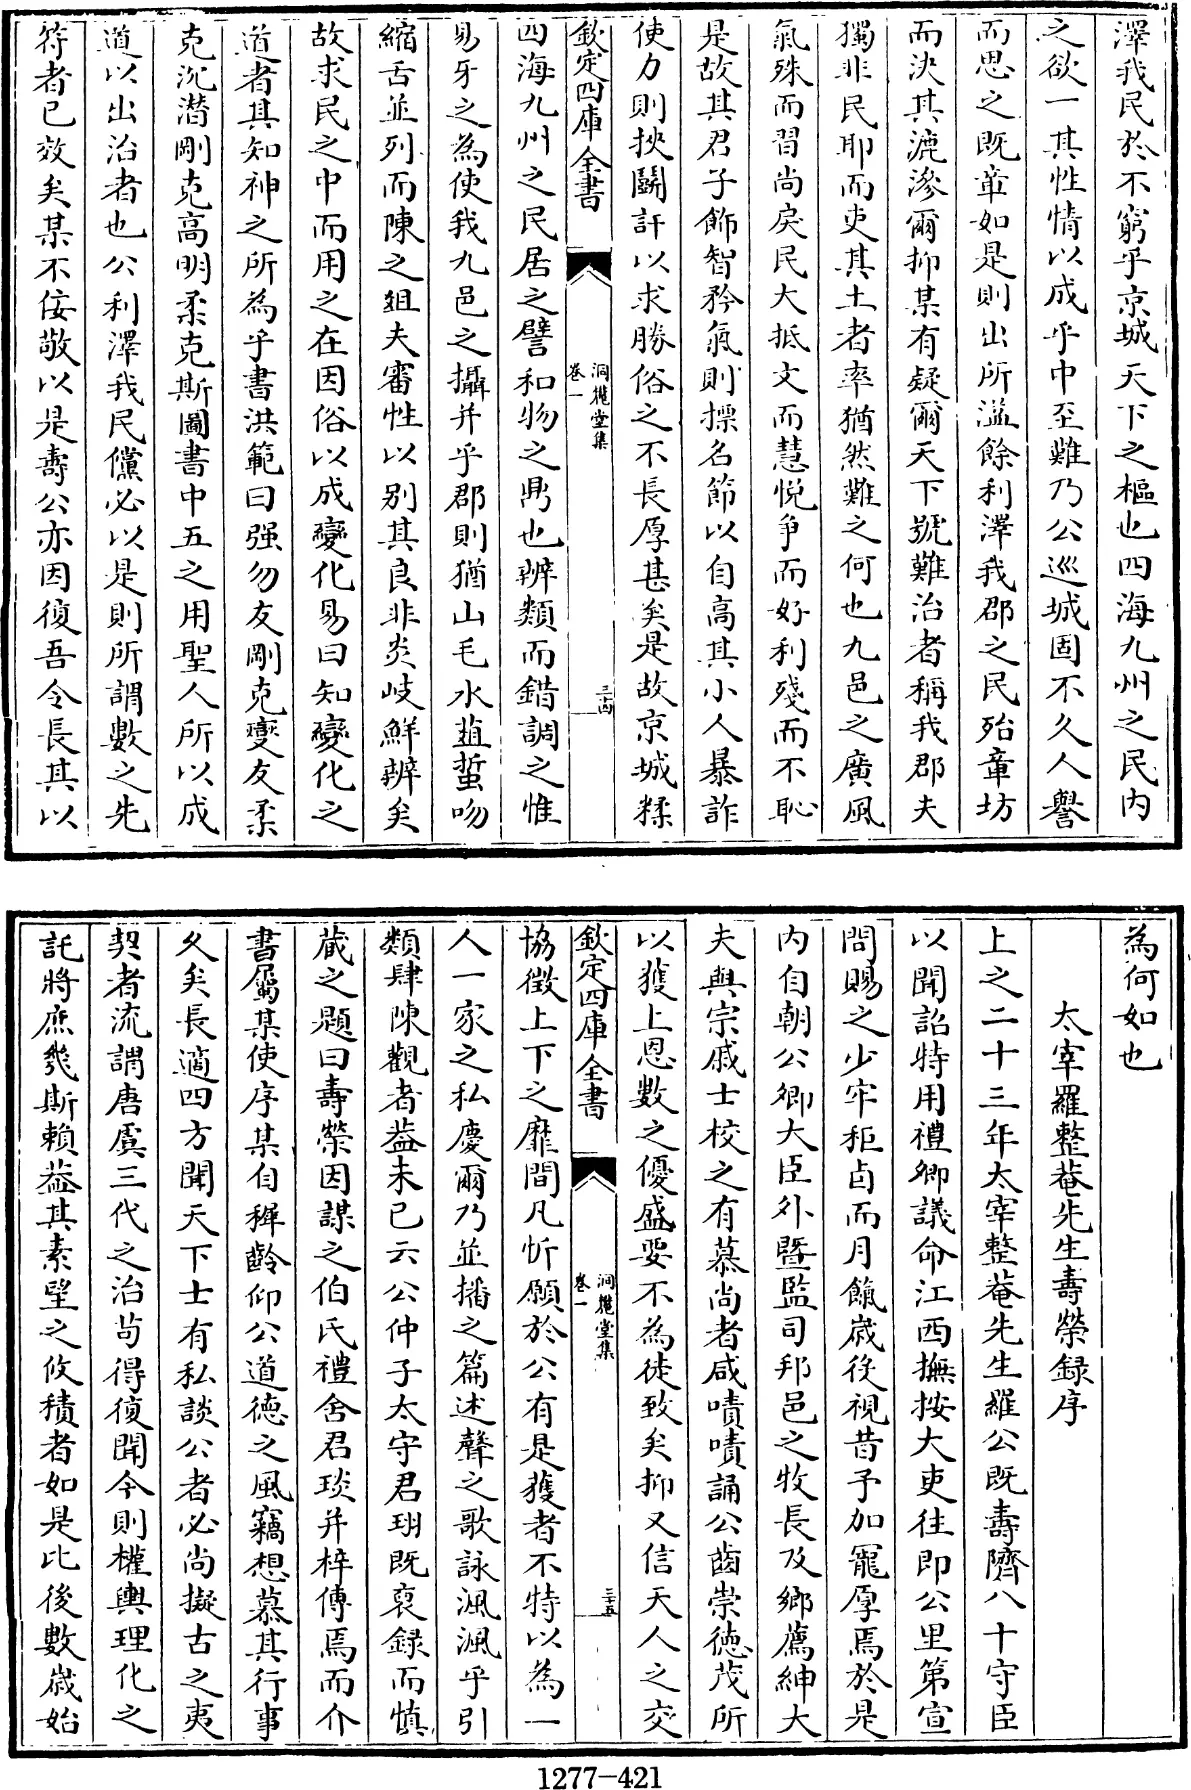 澤我民於不窮乎京城天下之樞也四海九州之民内
之欲一其性情以成乎中至難乃公巡城固不久人譽
而思之既章如是則出所溢餘利澤我郡之民殆章坊
而決其漉滲爾抑某有疑爾天下號難治者稱我郡夫
獨非民耶而吏其土者率猶然難之何也九邑之廣風
氣殊而習尚戾民大抵文而慧悦争而好利殘而不恥
是故其君子飾智矜氣則摽名節以自高其小人暴詐
使力則挾鬭訐以求勝俗之不長厚甚矣是故京城糅
欽定四庫全書
洞麓堂集
卷一
三十四
四海九州之民居之譬和物之鼎也辨類而錯調之惟
易牙之為使我九邑之攝并乎郡則猶山毛水葅蜇吻
縮舌並列而陳之爼夫審性以别其良非炎岐鮮辨矣
故求民之中而用之在因俗以成變化易曰知變化之
道者其知神之所為乎書洪範曰强勿友剛克變友柔
克沉潛剛克高明柔克斯圖書中五之用聖人所以成
道以出治者也公利澤我民儻必以是則所謂數之先
符者已效矣某不佞敬以是壽公亦因復吾令長其以
為何如也
太宰羅整菴先生壽榮録序
上之二十三年太宰整菴先生羅公既壽隮八十守臣
以聞詔特用禮卿議命江西撫按大吏往即公里第宣
問賜之少牢秬卣而月餼歲役視昔予加寵厚焉於是
内自朝公卿大臣外暨監司邦邑之牧長及鄉薦紳大
夫與宗戚士校之有慕尚者咸嘖嘖誦公齒崇德茂所
以獲上恩數之優盛要不為徒致矣抑又信天人之交
欽定四庫全書
洞麓堂集
卷一
三十五
協徴上下之靡間凡忻願於公有是獲者不特以為一
人一家之私慶爾乃並播之篇述聲之歌詠渢渢乎引
類肆陳觀者益未已云公仲子太守君珝既裒録而慎
蔵之題曰壽榮因謀之伯氏禮舍君琰并梓傳焉而介
書屬某使序某自穉齡仰公道德之風竊想慕其行事
久矣長適四方聞天下士有私談公者必尚擬古之夷
契者流謂唐虞三代之治茍得復聞今則權輿理化之
託將庶幾斯賴葢其素望之攸積者如是比後數歲始
1277–421